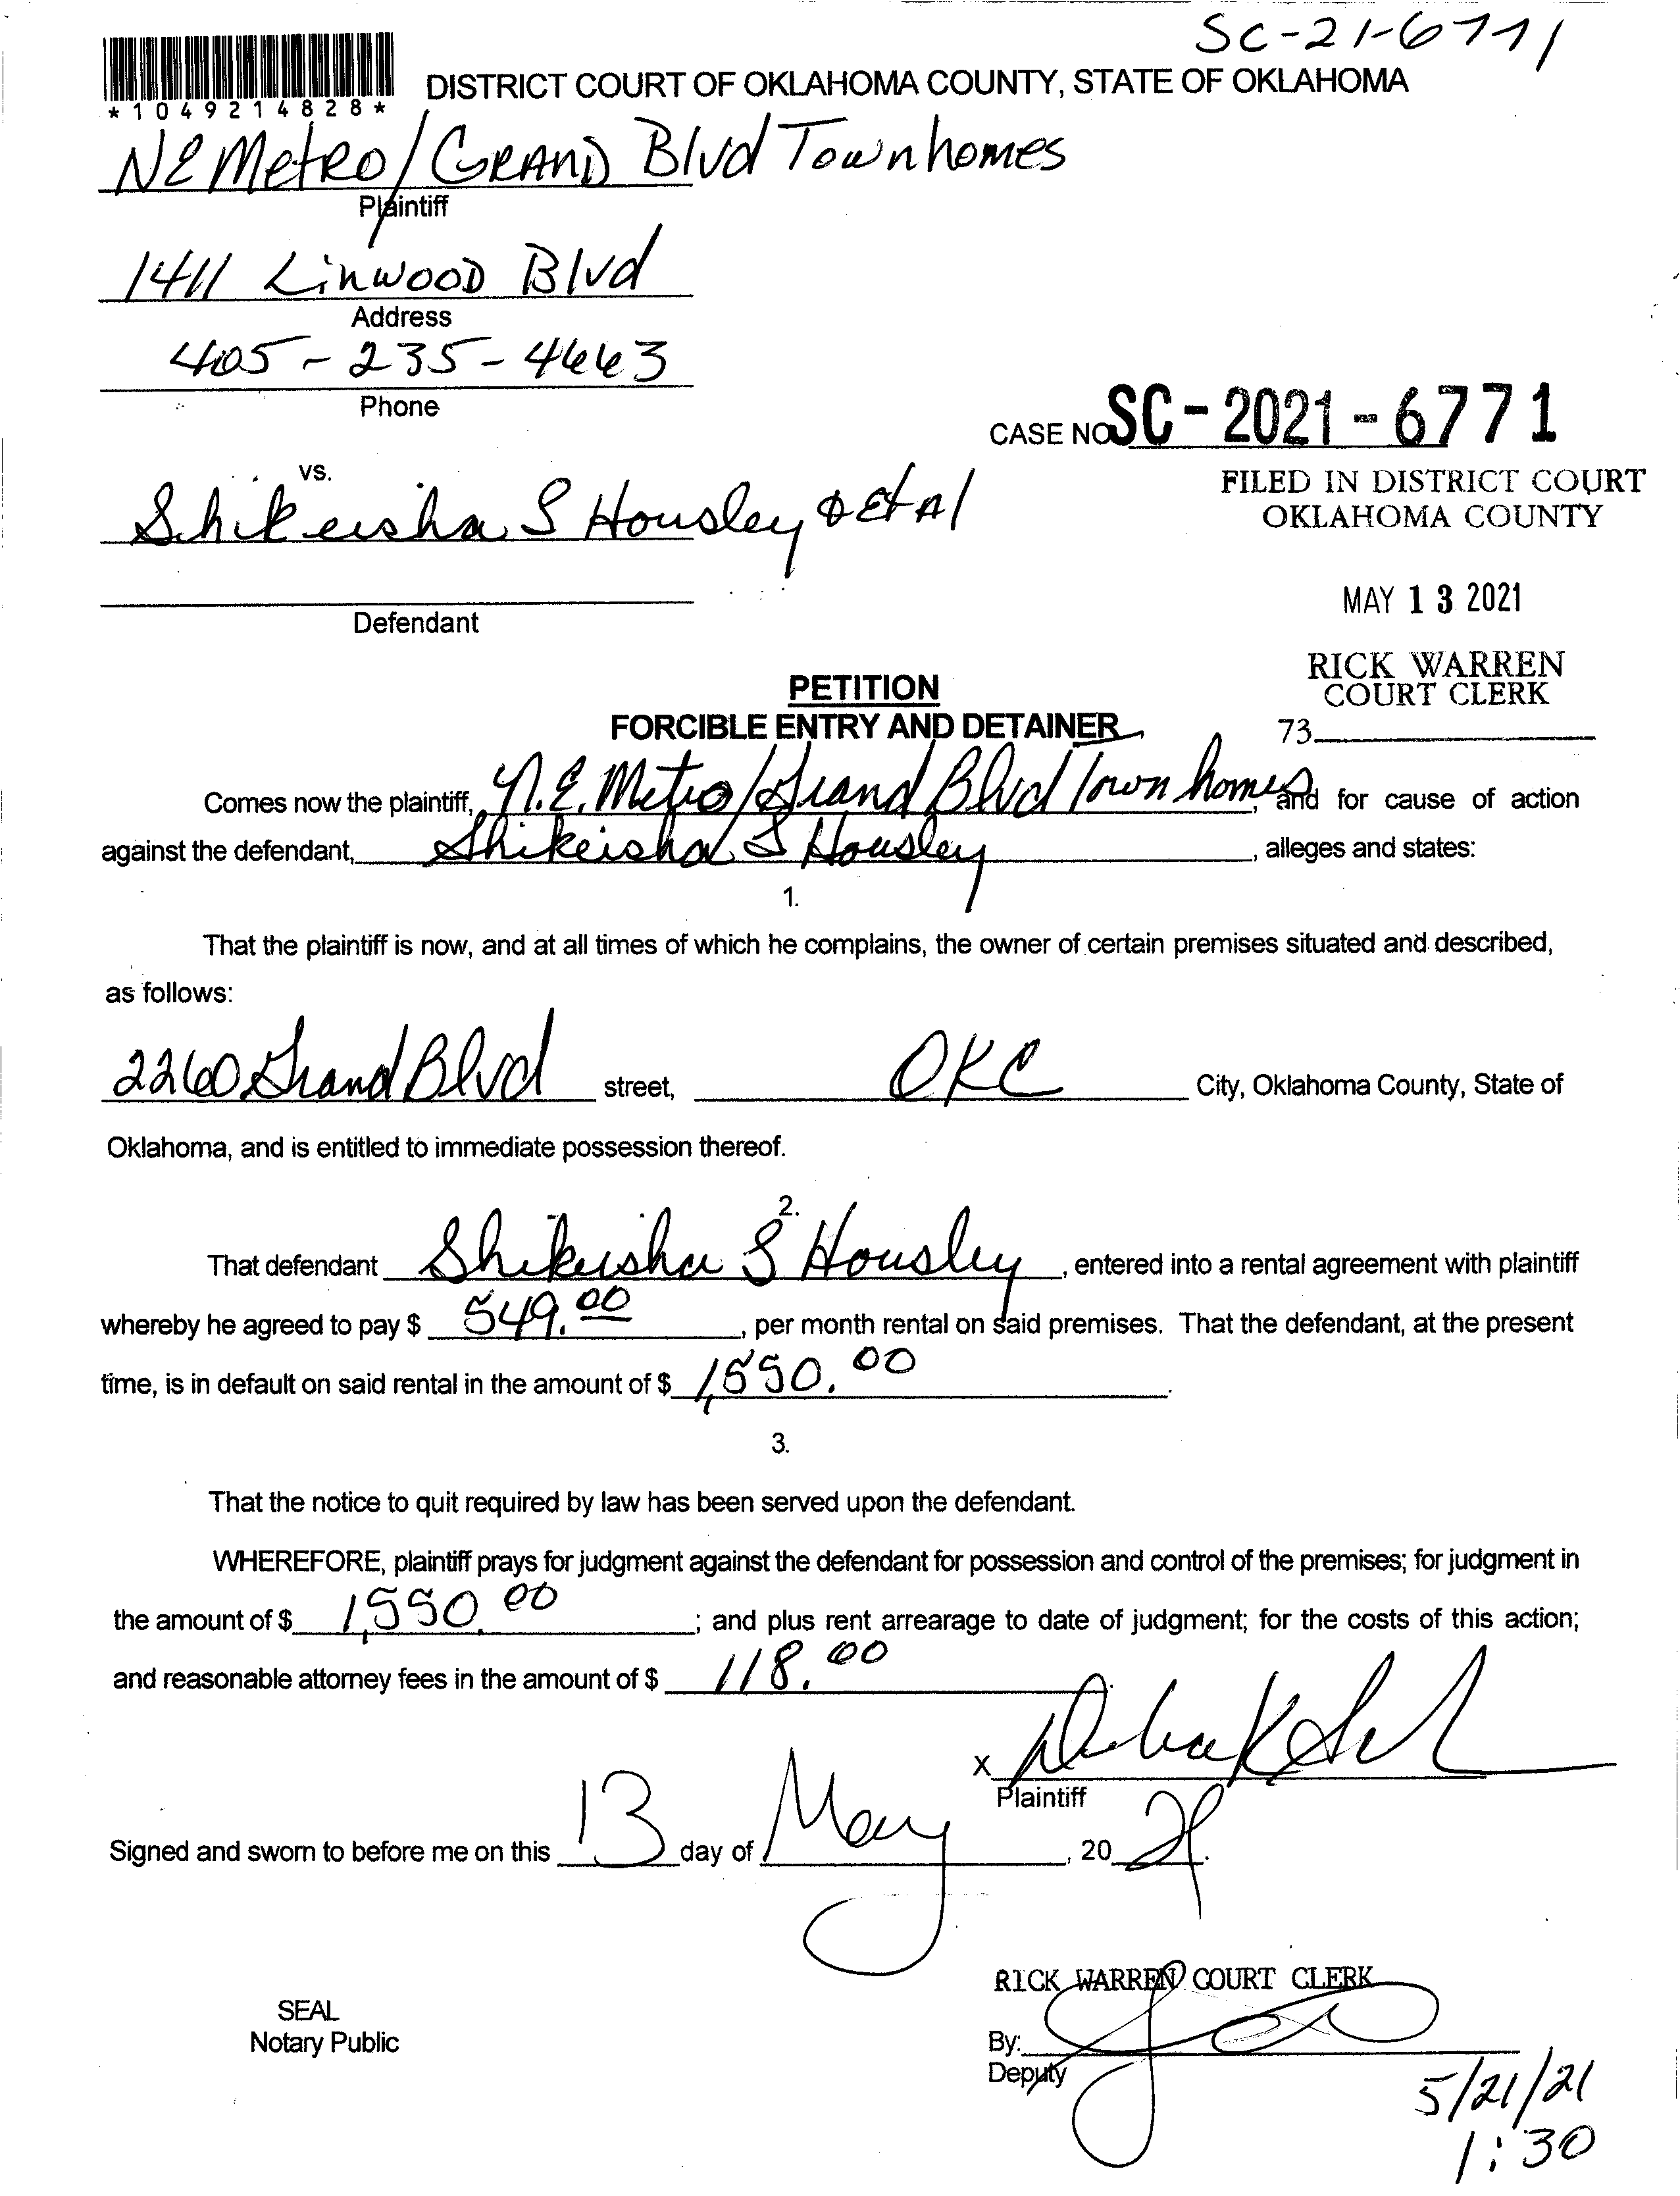 SC-21-6771
*1049214828*
DISTRICT COURT OF OKLAHOMA COUNTY, STATE OF OKLAHOMA
NE Metro/GRAND Blvd Townhomes
Plaintiff
1411 Linwood Blvd
Address
405-235-4663
Phone
CASE NO. SC-2021-6771
vs.
FILED IN DISTRICT COURT
OKLAHOMA COUNTY
Shikeisha S Housley & Et Al
MAY 13 2021
Defendant
RICK WARREN
COURT CLERK
PETITION
FORCIBLE ENTRY AND DETAINER
73
Comes now the plaintiff, N.E. Metro/Grand Blvd Townhomes, and for cause of action
against the defendant, Shikeisha S Housley, alleges and states:
1.
That the plaintiff is now, and at all times of which he complains, the owner of certain premises situated and described,
as follows:
2260 Grand Blvd street, OKC City, Oklahoma County, State of
Oklahoma, and is entitled to immediate possession thereof.
2.
That defendant Shikeisha S Housley, entered into a rental agreement with plaintiff
whereby he agreed to pay $ 549.00, per month rental on said premises. That the defendant, at the present
time, is in default on said rental in the amount of $ 1,550.00.
3.
That the notice to quit required by law has been served upon the defendant.
WHEREFORE, plaintiff prays for judgment against the defendant for possession and control of the premises; for judgment in
the amount of $ 1,550.00; and plus rent arrearage to date of judgment; for the costs of this action;
and reasonable attorney fees in the amount of $ 118.00
X
Plaintiff
Signed and sworn to before me on this 13 day of May, 2021.
RICK WARREN COURT CLERK
SEAL
Notary Public
By:
Deputy
5/21/21
1:30